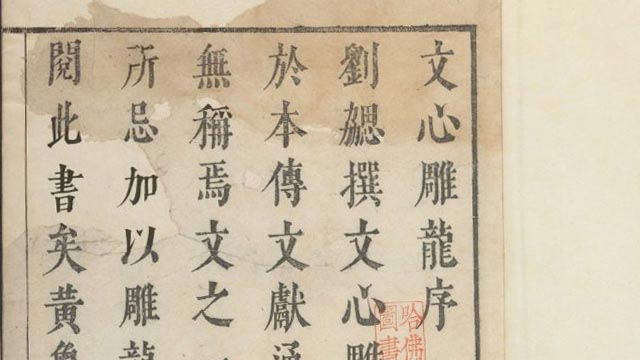 文心雕龍序
劉勰撰文心雕
於本傳文獻通
無稱焉文之
所忌加以雕龍
閱此書矣黃魯
哈佛
圖書